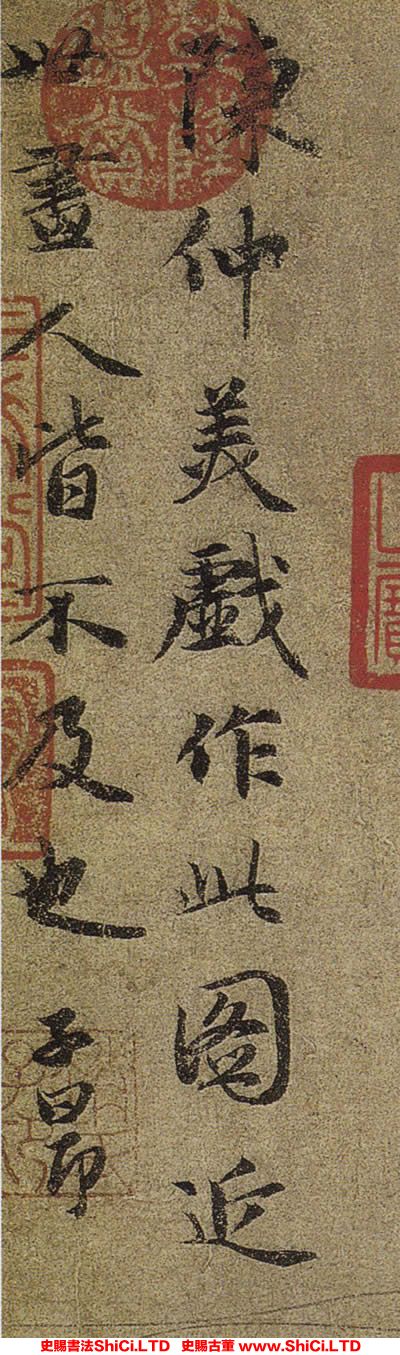 陳仲美戲作此圖近
世畫人皆不及也 子昂
史賜書法ShiCi.LTD 史賜古董 www.ShiCi.LTD